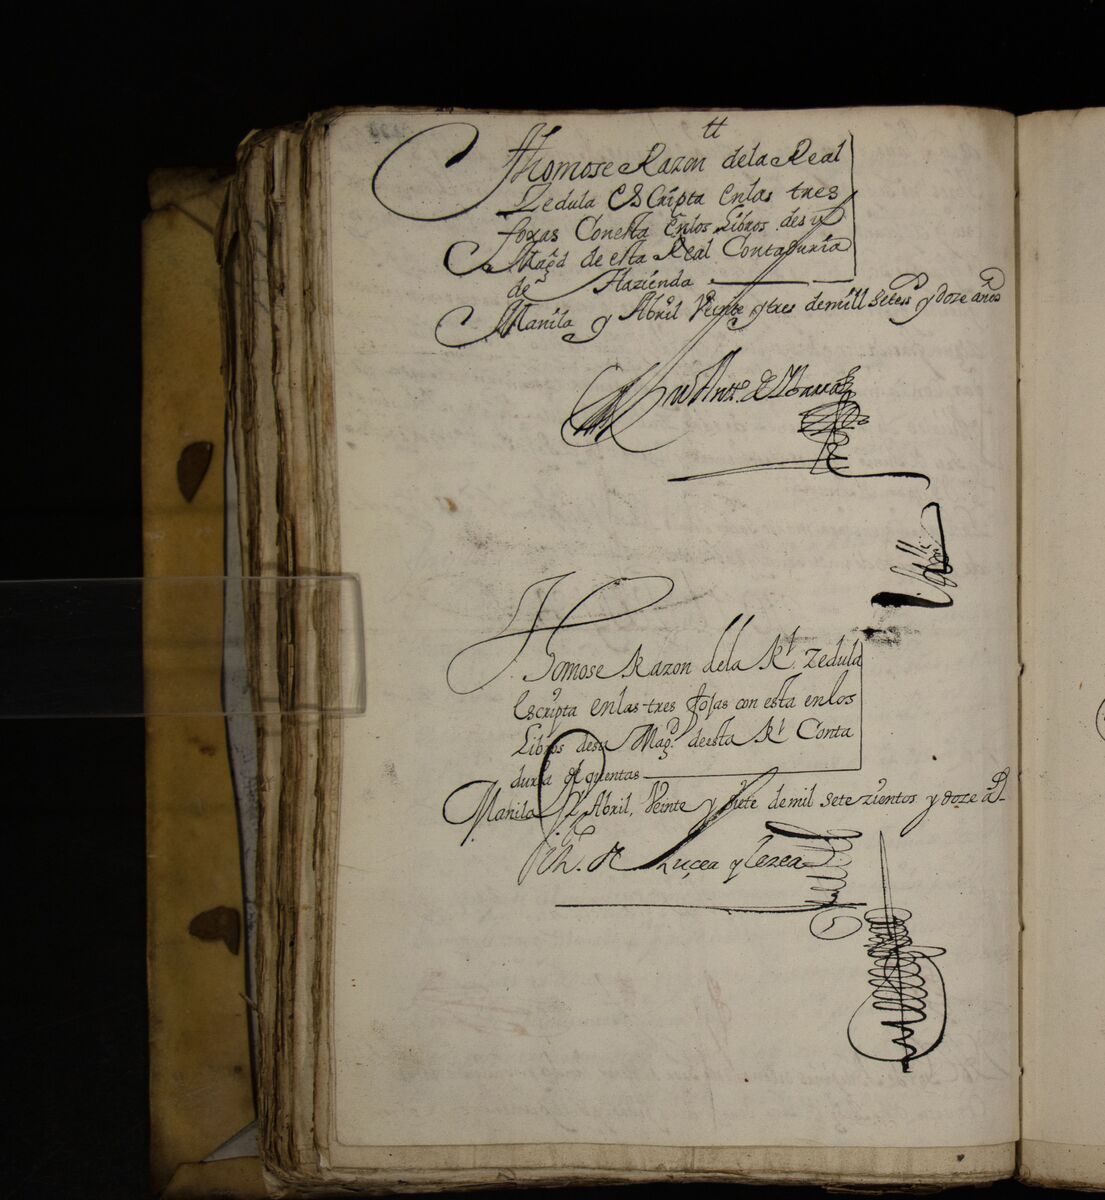 tt
Thomose Razon dela Real
Zedula Escripta enlas tres
foxas Conesta enlos Libros de su
Magd de esta Real Contaduria
de Hazienda
Manila y Abril Veinte y tres demill setess y doze años
Thomose Razon dela Rl Zedula
Escripta enlas tres fojas con esta enlos
Libros desu Magd. deesta Rl Conta
duria de quentas
Manila y Abril, Veinte y siete de mil sete zientos y doze as